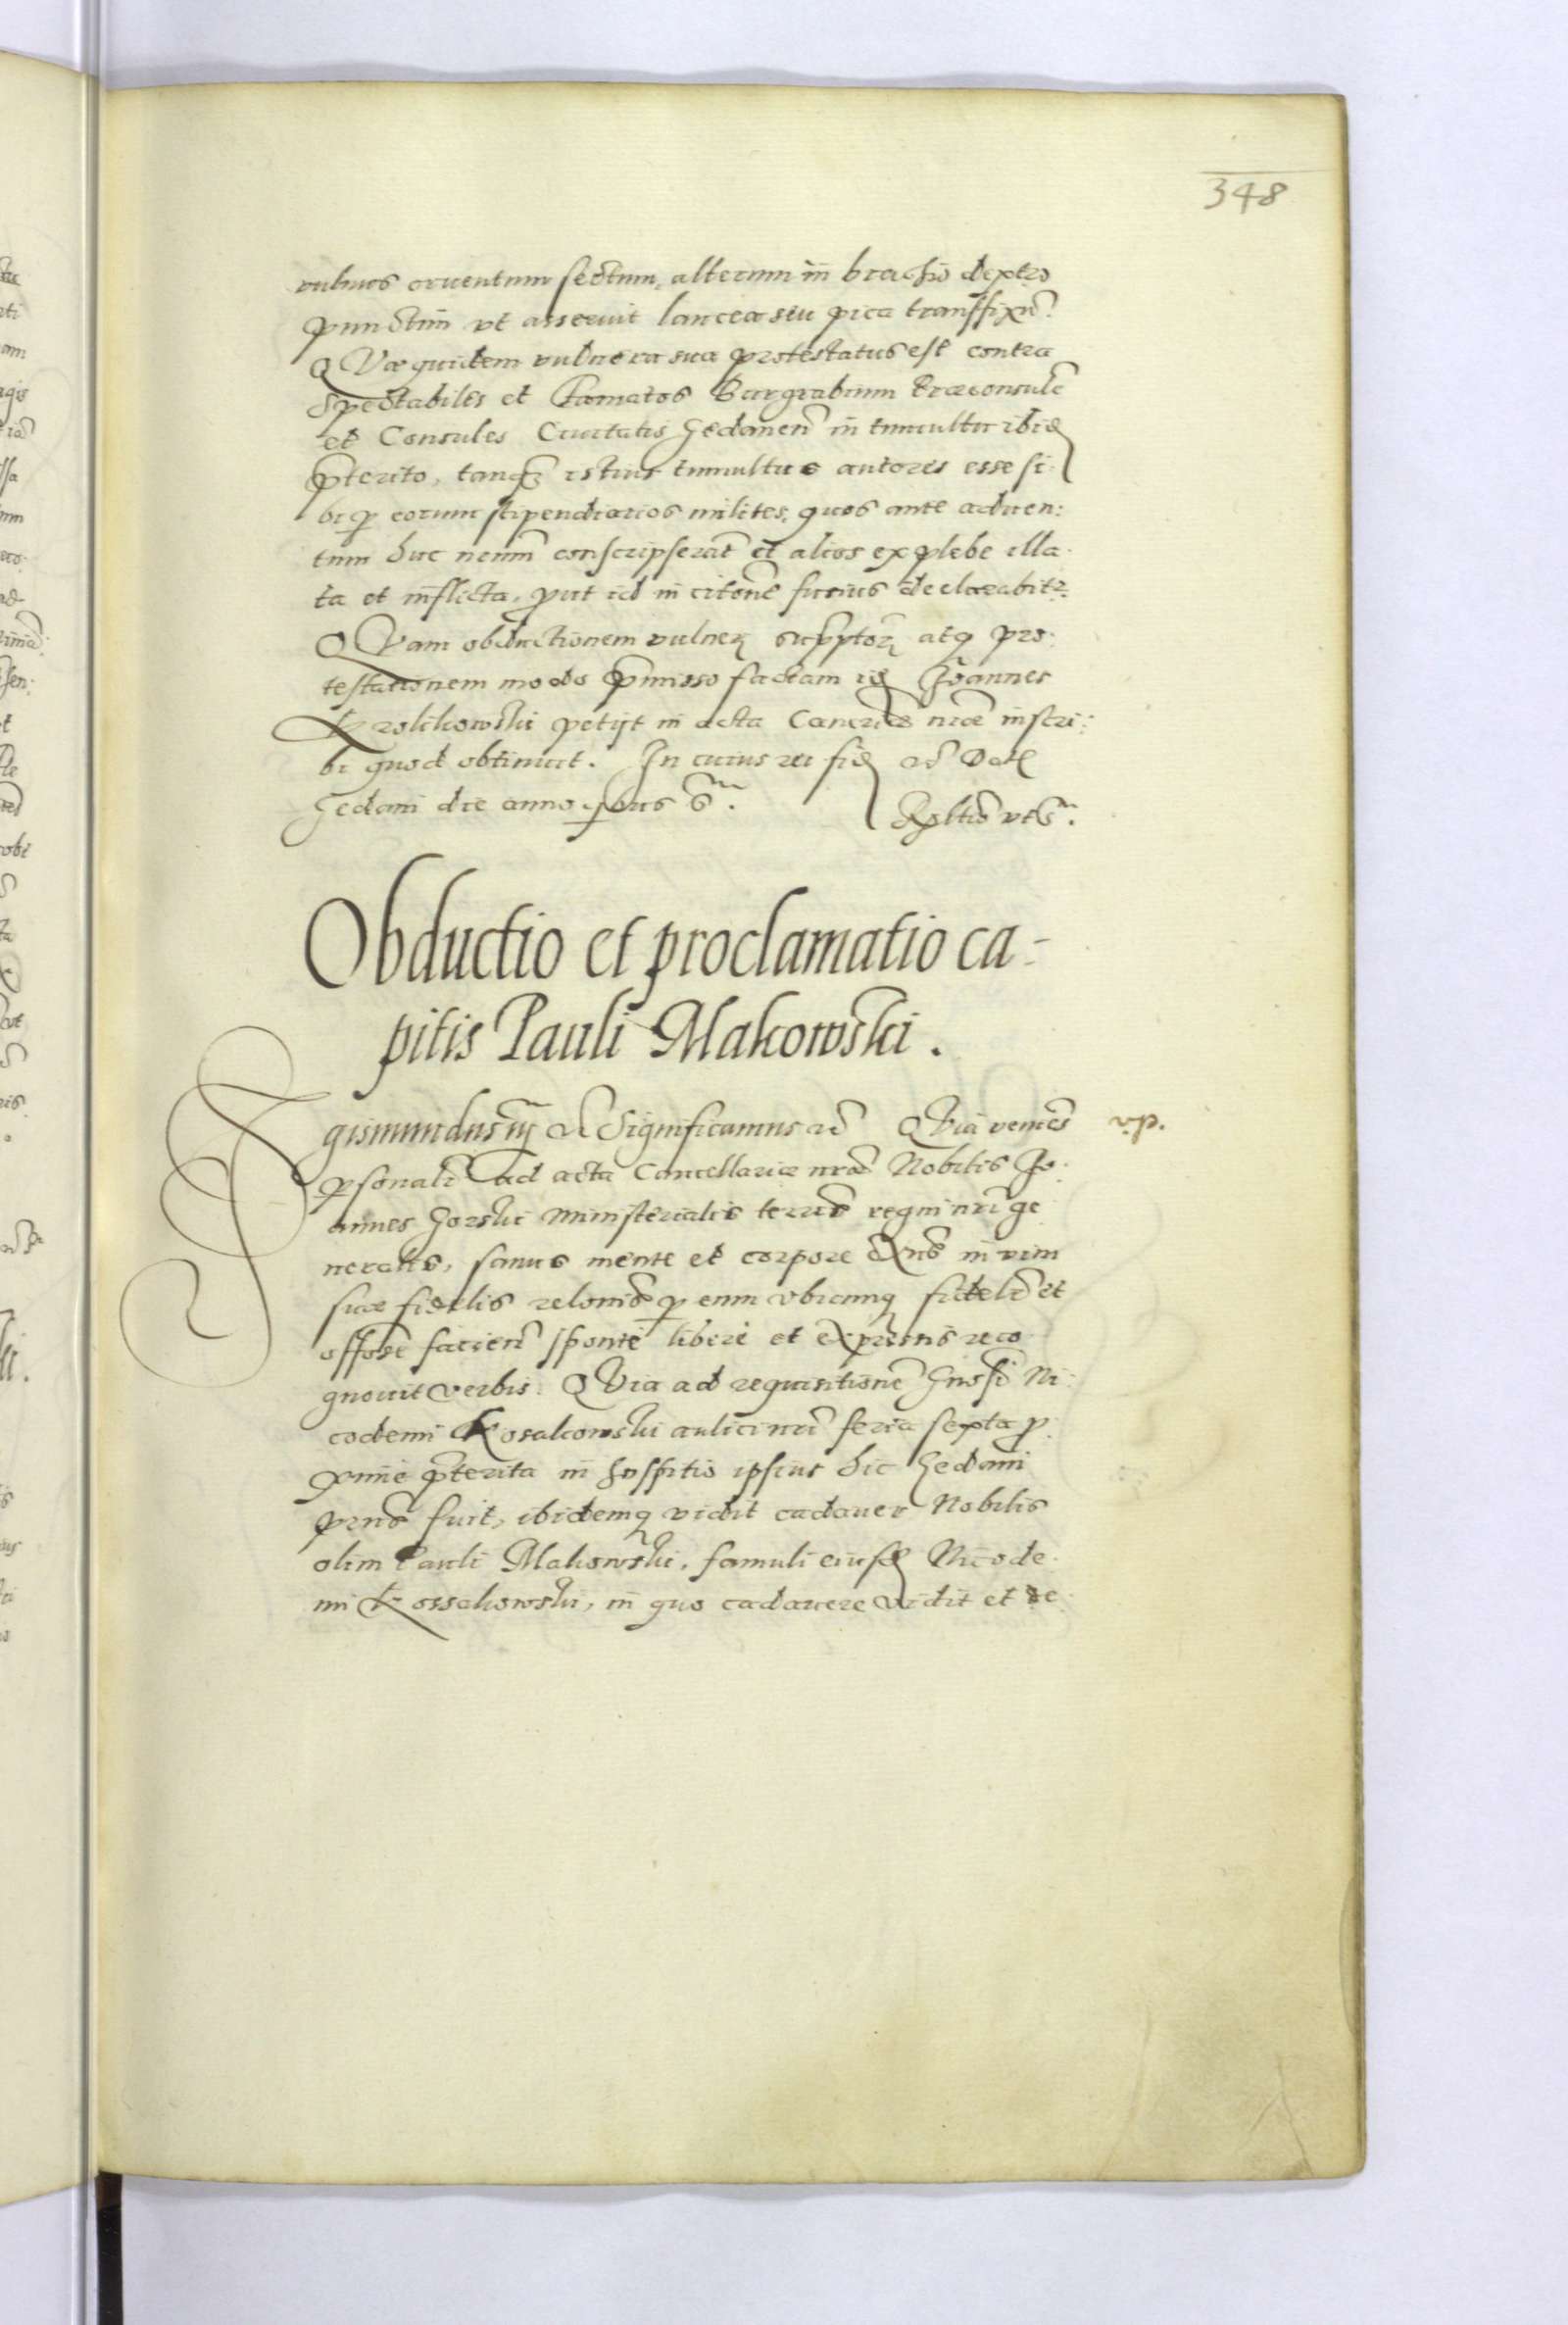 348
vulnus cruentum sectum, alterum in brachio dextro
punctim ut asseruit lancea seu pica transfixũ.
QVæ quidem vulnera sua protestatus est contra
Spectabiles et Famatos Burgrabium Præconsulẽ
et Consules Ciuitatis Gedaneñ in tumultu ibid
p̃terito, tanq̃ istius tumultus autores esse si:
bi p eorum stipendiarios milites, quos ante aduen:
tum huc nrũm conscripserãt et alios ex plebe illa
ta et inflicta, put id in citõne fusius declarabitr.
QVam obductionem vulner suprptor atq pro:
testationem modo p̃misso factam id Joannes
Krolikowski petijt in acta Cancriæ nræ inscri:
bi quod obtinuit. In cuius rei fid Dat
Gedani die anno quibus s.
Reltio ut s.
Obductio et proclamatio ca-
pitis Pauli Makowski.
Sigismundus iij Significamus QVia veniẽs
v.p.
psonalr̃ ad acta Cancellariæ nræ Nobilis Jo:
annes Gorski Ministerialis terrẽs regni nri ge
neralis, sanus mente et corpore exñs in vim
suæ fidelis relonis p eum vbicunq fidelr̃ et
offose facien̄ sponte libere et expressis reco
gnouit verbis. QVia ad requisitionẽ Gnosi Ni:
codemi Kosakowski aulici nri feria sexta p
xime p̃terita in hospitio ipsius hic Gedani
prns fuit, ibidemq vidit cadauer Nobilis
olim Pauli Makowski, famuli eiusd Nicode:
mi Kossakowski, in quo cadauere vidit et re